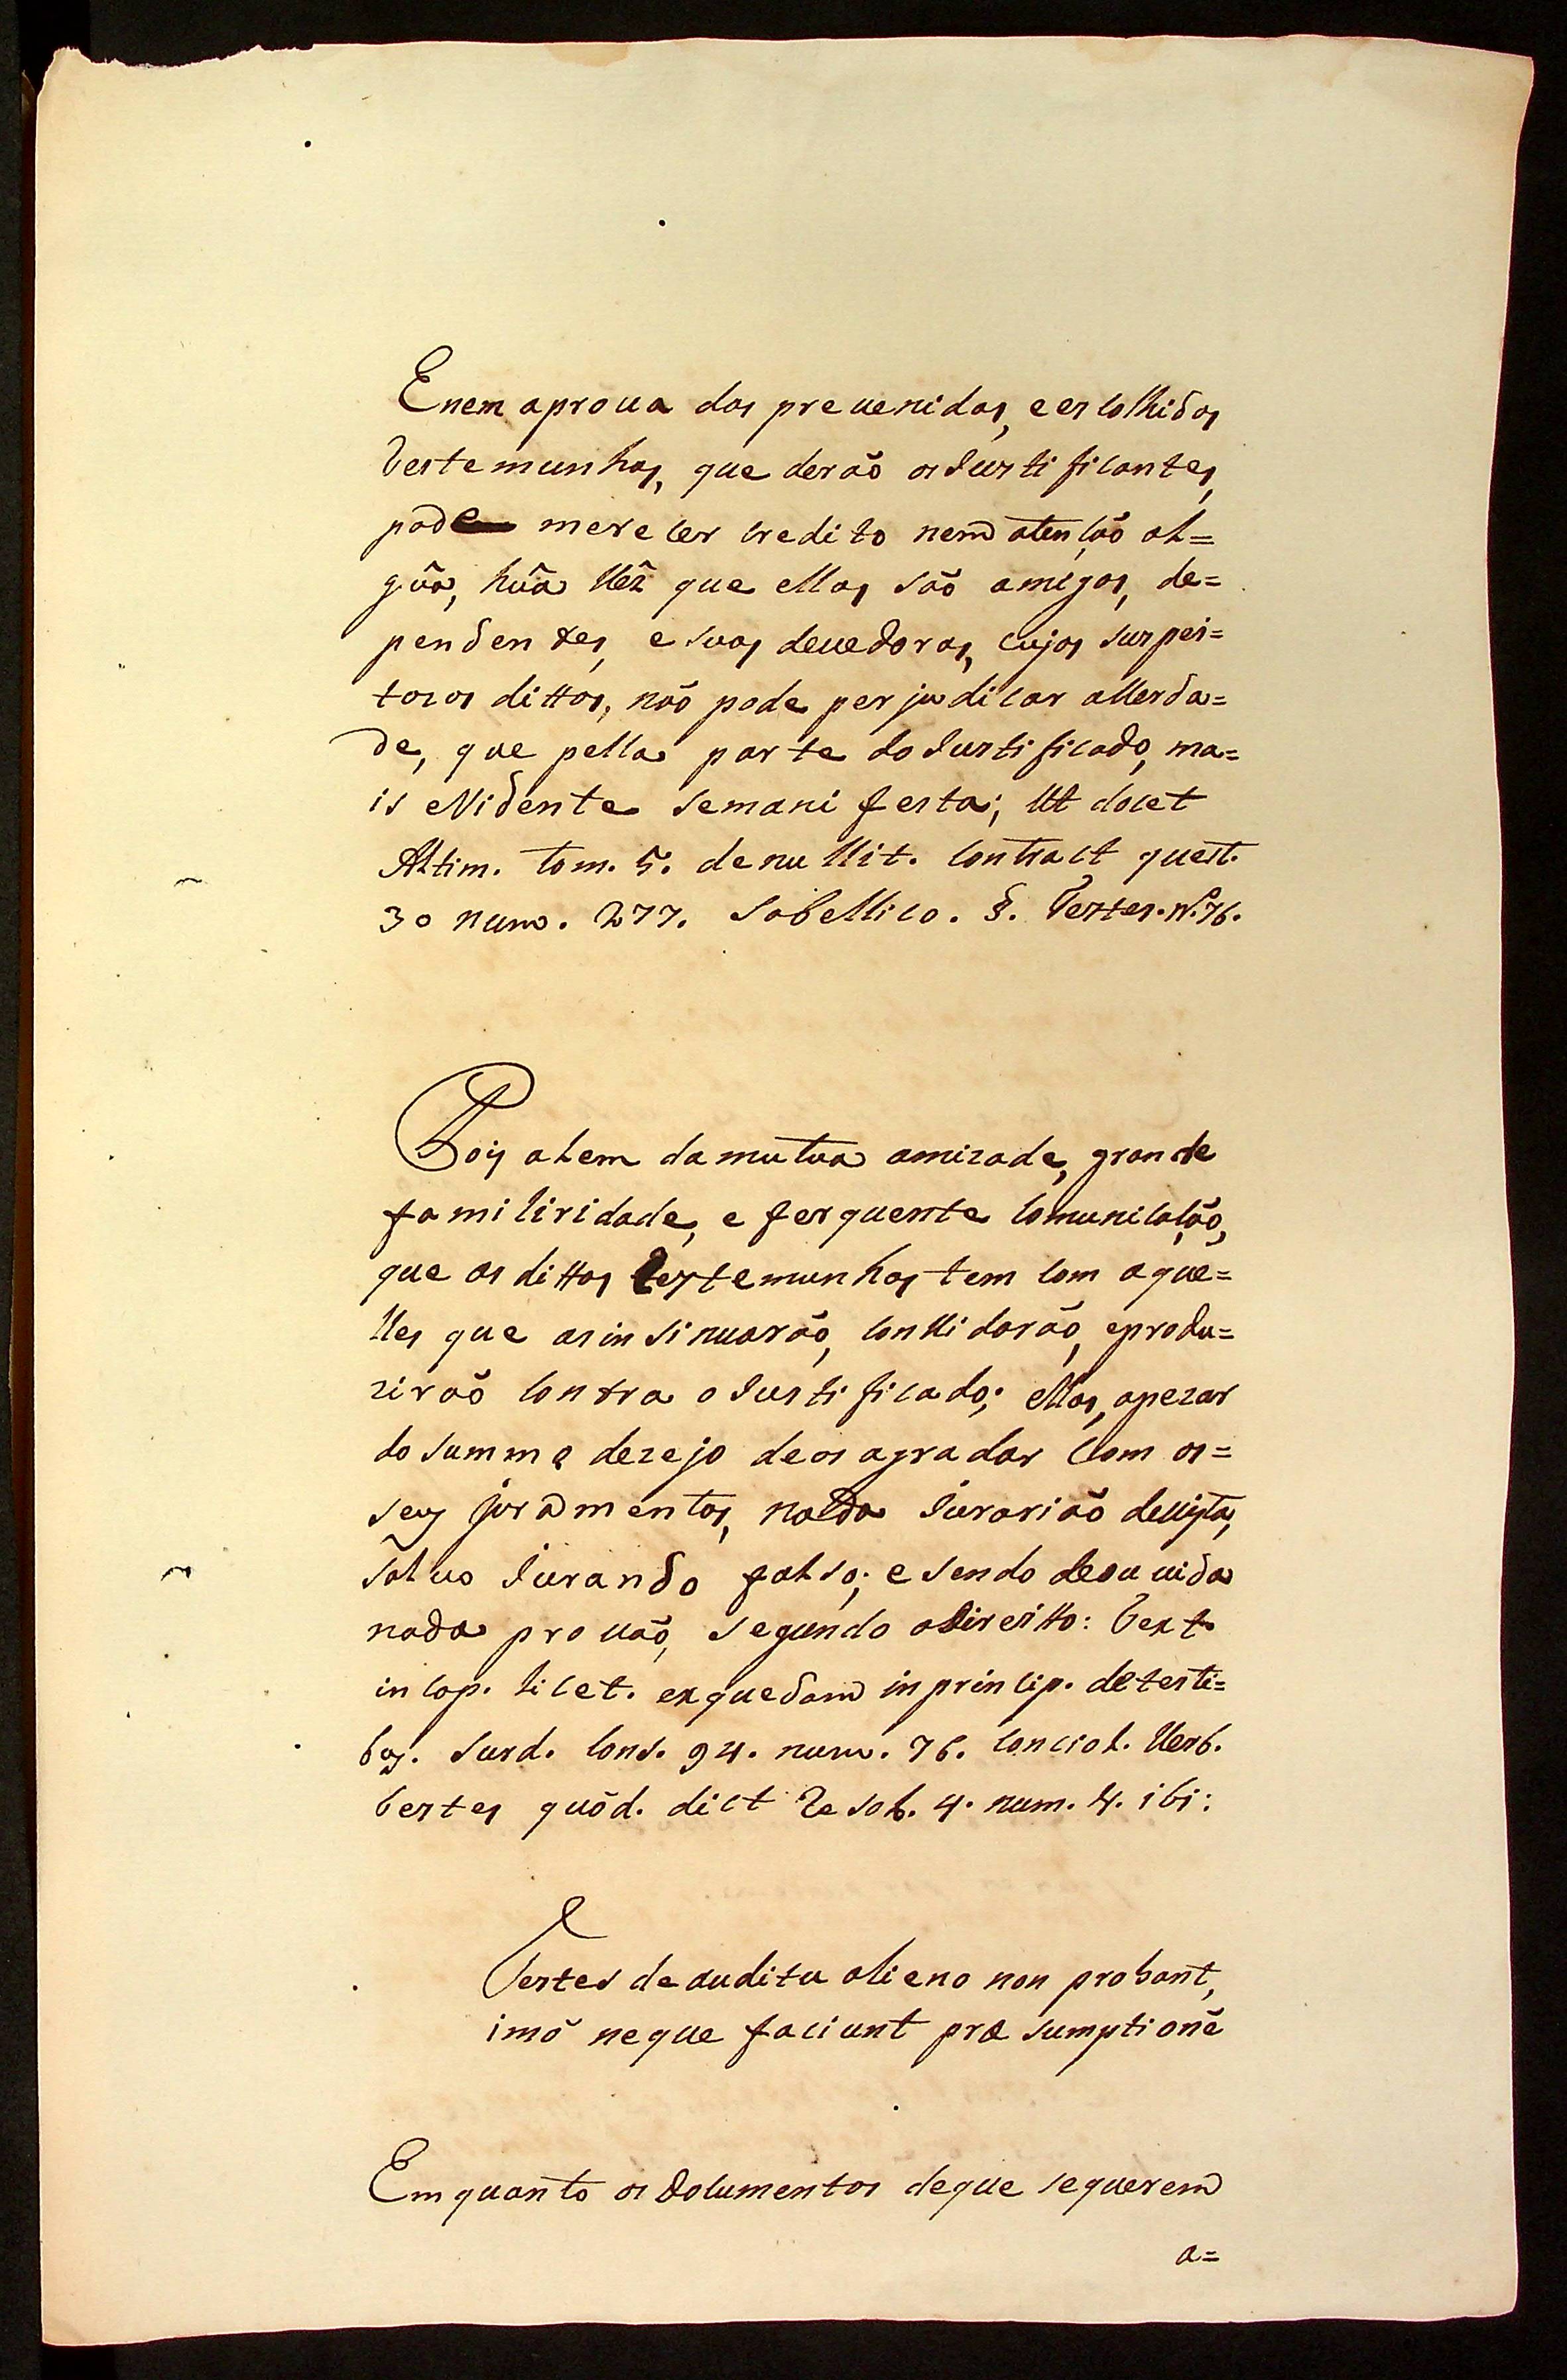 Enem aprova das prevenidas, e escolhidas
testemunhas, que deraõ os Justificantes,
pode merecer credito nem atençaõ al=
guã, huã Vêz que ellas saõ amigas, de=
pendentes, e suas devedoras, cujos suspei=
tozos dittos, naõ pode perjudicar aVerda=
de, que pella parte do Justificado, ma=
is eVidente semanifesta; Ut docet
Altim. tom. 5. denullit. contract quest.
30 num. 277. Sabellico. §. Testes. N. 76.
Pois alem damutua amizade, grande
familiridade, e ferquente comunicaçaõ,
que as dittas testemunhas tem com aque=
lles que asinsinuaraõ, conVidaraõ, eprodu=
ziraõ contra oJustificado; ellas, apezar
do summo dezejo deos agradar com os=
seus juramentos, nada Jurariaõ deVista,
salvo Jurando falso; esendo deouvida
nada provaõ, segundo oDireitto: text.
in cap. licet. exquedam inprincip. detesti=
bus. Surd. Cons. 94. num. 76. Conciol. Verb.
testes quôd. dict Resol. 4. num. 4. ibi:
Testes deauditu alieno non probant,
imô neque faciunt præsumptionẽ
Emquanto os Documentos deque sequerem
a=